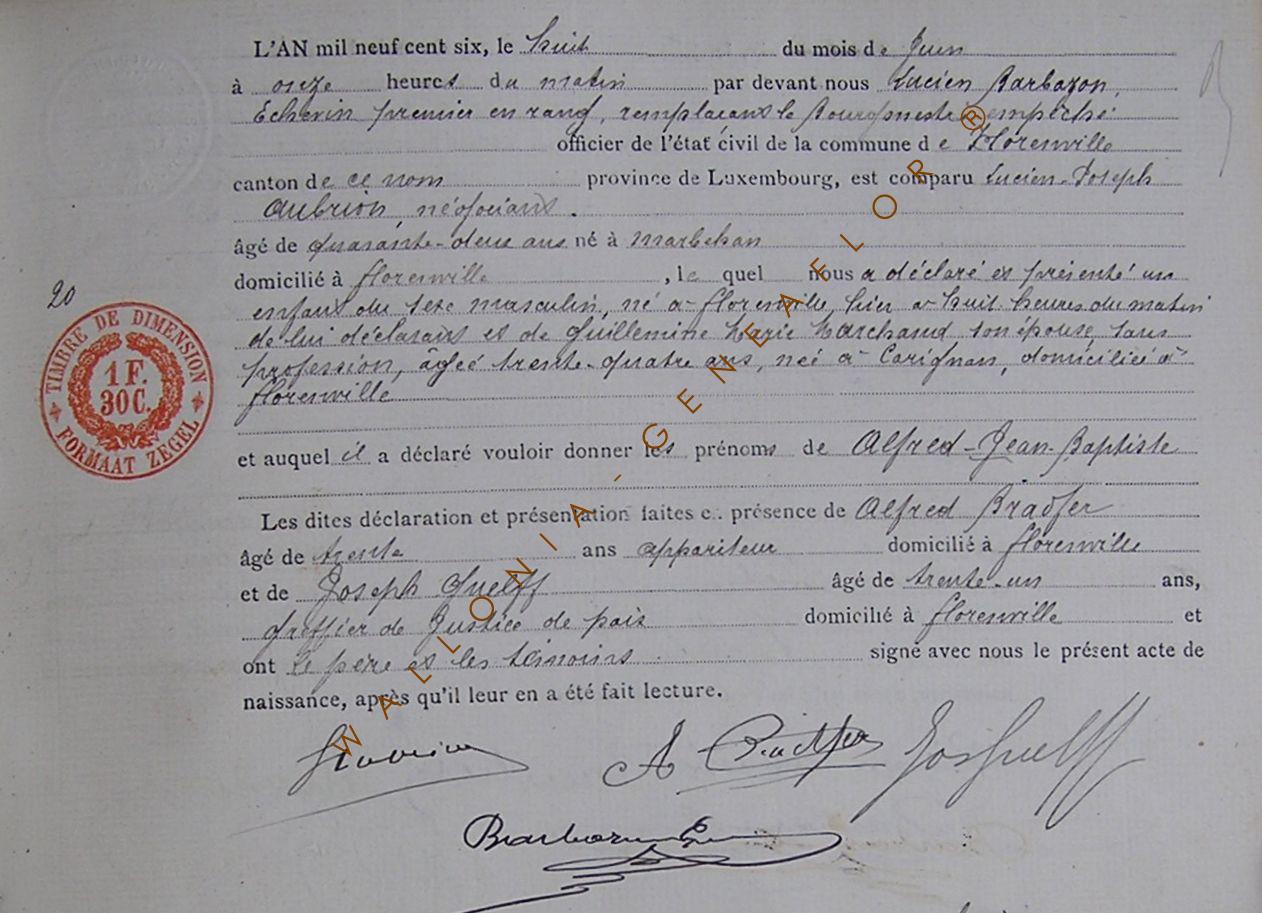 L'AN mil neuf cent six, le huit du mois de Juin
à onze heures du matin par devant nous Lucien Barbazon,
Echevin premier en rang, remplaçant le Bourgmestre empêché
officier de l'état civil de la commune de Florenville
canton de ce nom province de Luxembourg, est comparu Lucien-Joseph
Aubrion, négociant.
âgé de quarante-deux ans né à Marbehan
domicilié à Florenville, lequel nous a déclaré et présenté un
enfant du sexe masculin, né à Florenville, hier à huit heures du matin
de lui déclarant et de Guillemine Marie Marchand, son épouse, sans
profession, âgée trente-quatre ans, née à Carignan, domiciliée à
Florenville
20
TIMBRE DE DIMENSION
1 F.
30 C.
FORMAAT ZEGEL
et auquel il a déclaré vouloir donner les prénoms de Alfred-Jean-Baptiste
Les dites déclaration et présentation faites en présence de Alfred Bradfer
âgé de trente ans appariteur domicilié à Florenville
et de Joseph Guelff âgé de trente-un ans,
greffier de Justice de paix domicilié à Florenville et
ont le père et les témoins signé avec nous le présent acte de
naissance, après qu'il leur en a été fait lecture.
A Bradfer Jos Guelff
WALLONIA-GENEAFLOR®